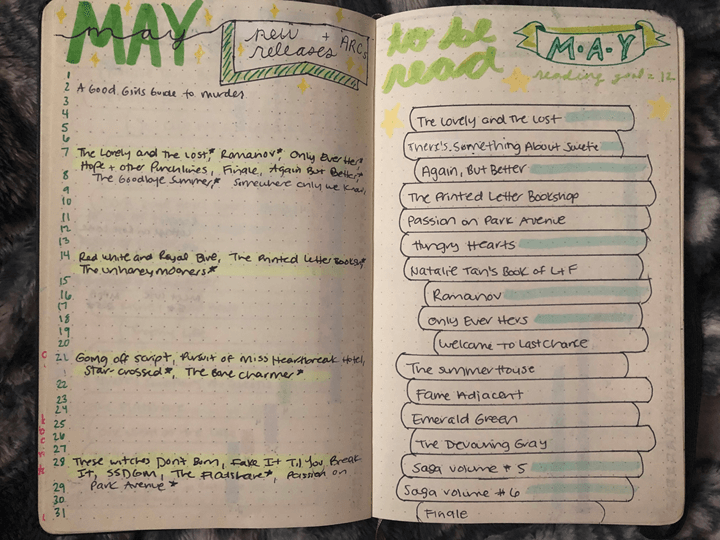 MAY
may
new + ARCs
releases
1
2 A Good Girls Guide to murder
3
4
5
6
7 The Lovely and the Lost,* Romanov*, Only Ever Hers*
Hope + other Punchlines, Finale, Again But Better,*
8 The Goodbye Summer,* Somewhere only we know
9
10
11
12
13
14 Red White and Royal Blue, The Printed Letter Bookshop*
The unhoneymooners*
15
16
17
18
19
20
21 Going off script, Pursuit of Miss Heartbreak Hotel,
Star-crossed*, The Bone charmer*
22
23
24
25
26
27
28 These witches Don't Burn, Fake It Til You Break
It, SSDGM, The Flatshare*, Passion on
29 Park Avenue*
30
31
to be
read
M·A·Y
reading goal = 12
The Lovely and The Lost
There's Something About Sweetie
Again, But Better
The Printed Letter Bookshop
Passion on Park Avenue
Hungry Hearts
Natalie Tan's Book of L+F
Romanov
Only Ever Hers
Welcome to Last Chance
The Summer House
Fame Adjacent
Emerald Green
The Devouring Gray
Saga volume #5
Saga volume #6
Finale